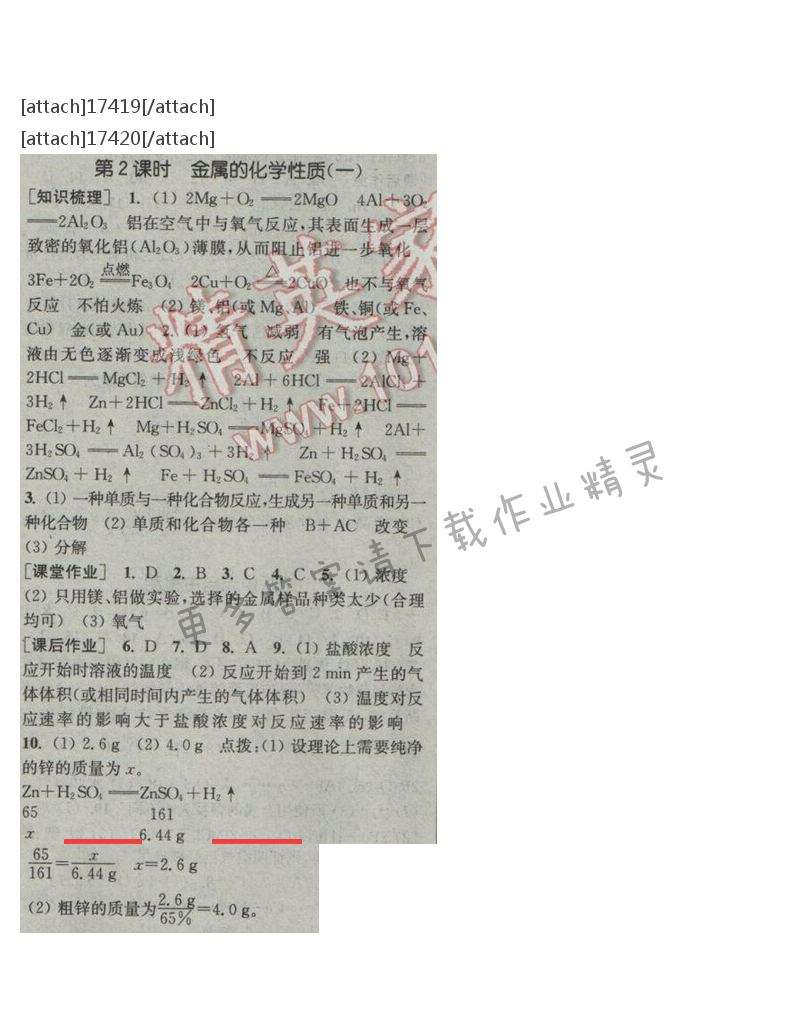 [attach]17419[/attach]
[attach]17420[/attach]
第2课时 金属的化学性质(一)
[知识梳理] 1. (1) 2Mg+O₂══2MgO 4Al+3O₂
══2Al₂O₃ 铝在空气中与氧气反应,其表面生成一层
致密的氧化铝(Al₂O₃)薄膜,从而阻止铝进一步氧化
3Fe+2O₂ 点燃══ Fe₃O₄ 2Cu+O₂ △══ 2CuO 也不与氧气
反应 不怕火炼 (2) 镁、铝(或Mg、Al) 铁、铜(或Fe、
Cu) 金(或Au) 2. (1) 氢气 减弱 有气泡产生,溶
液由无色逐渐变成浅绿色 不反应 强 (2) Mg+
2HCl══MgCl₂+H₂↑ 2Al+6HCl══2AlCl₃+
3H₂↑ Zn+2HCl══ZnCl₂+H₂↑ Fe+2HCl══
FeCl₂+H₂↑ Mg+H₂SO₄══MgSO₄+H₂↑ 2Al+
3H₂SO₄══Al₂(SO₄)₃+3H₂↑ Zn+H₂SO₄══
ZnSO₄+H₂↑ Fe+H₂SO₄══FeSO₄+H₂↑
3. (1) 一种单质与一种化合物反应,生成另一种单质和另一
种化合物 (2) 单质和化合物各一种 B+AC 改变
(3) 分解
[课堂作业] 1. D 2. B 3. C 4. C 5. (1) 浓度
(2) 只用镁、铝做实验,选择的金属样品种类太少(合理
均可) (3) 氧气
[课后作业] 6. D 7. D 8. A 9. (1) 盐酸浓度 反
应开始时溶液的温度 (2) 反应开始到2 min产生的气
体体积(或相同时间内产生的气体体积) (3) 温度对反
应速率的影响大于盐酸浓度对反应速率的影响
10. (1) 2.6 g (2) 4.0 g 点拨:(1) 设理论上需要纯净
的锌的质量为x。
Zn+H₂SO₄══ZnSO₄+H₂↑
65 161
x 6.44 g
65/161=x/6.44 g x=2.6 g
(2) 粗锌的质量为2.6 g/65%=4.0 g。
精英家
www.101
更多答案请下载作业精灵